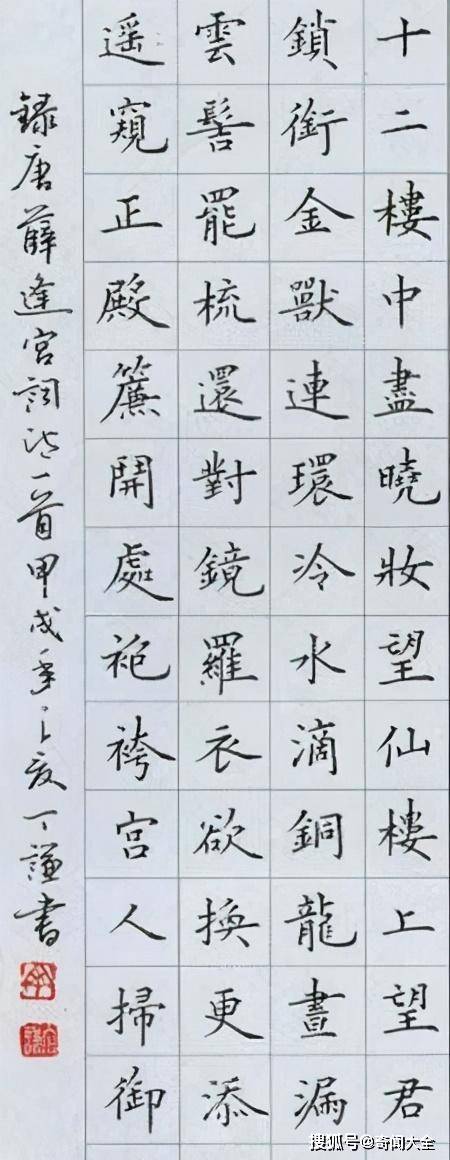 十二樓中盡曉妝望仙樓上望君
鎖銜金獸連環冷水滴銅龍晝漏
雲髻罷梳還對鏡羅衣欲換更添
遥窺正殿簾開處袍袴宫人掃御
録唐薛逢宫詞詩一首甲戌年之夏丁謙書
搜狐号@奇闻大全